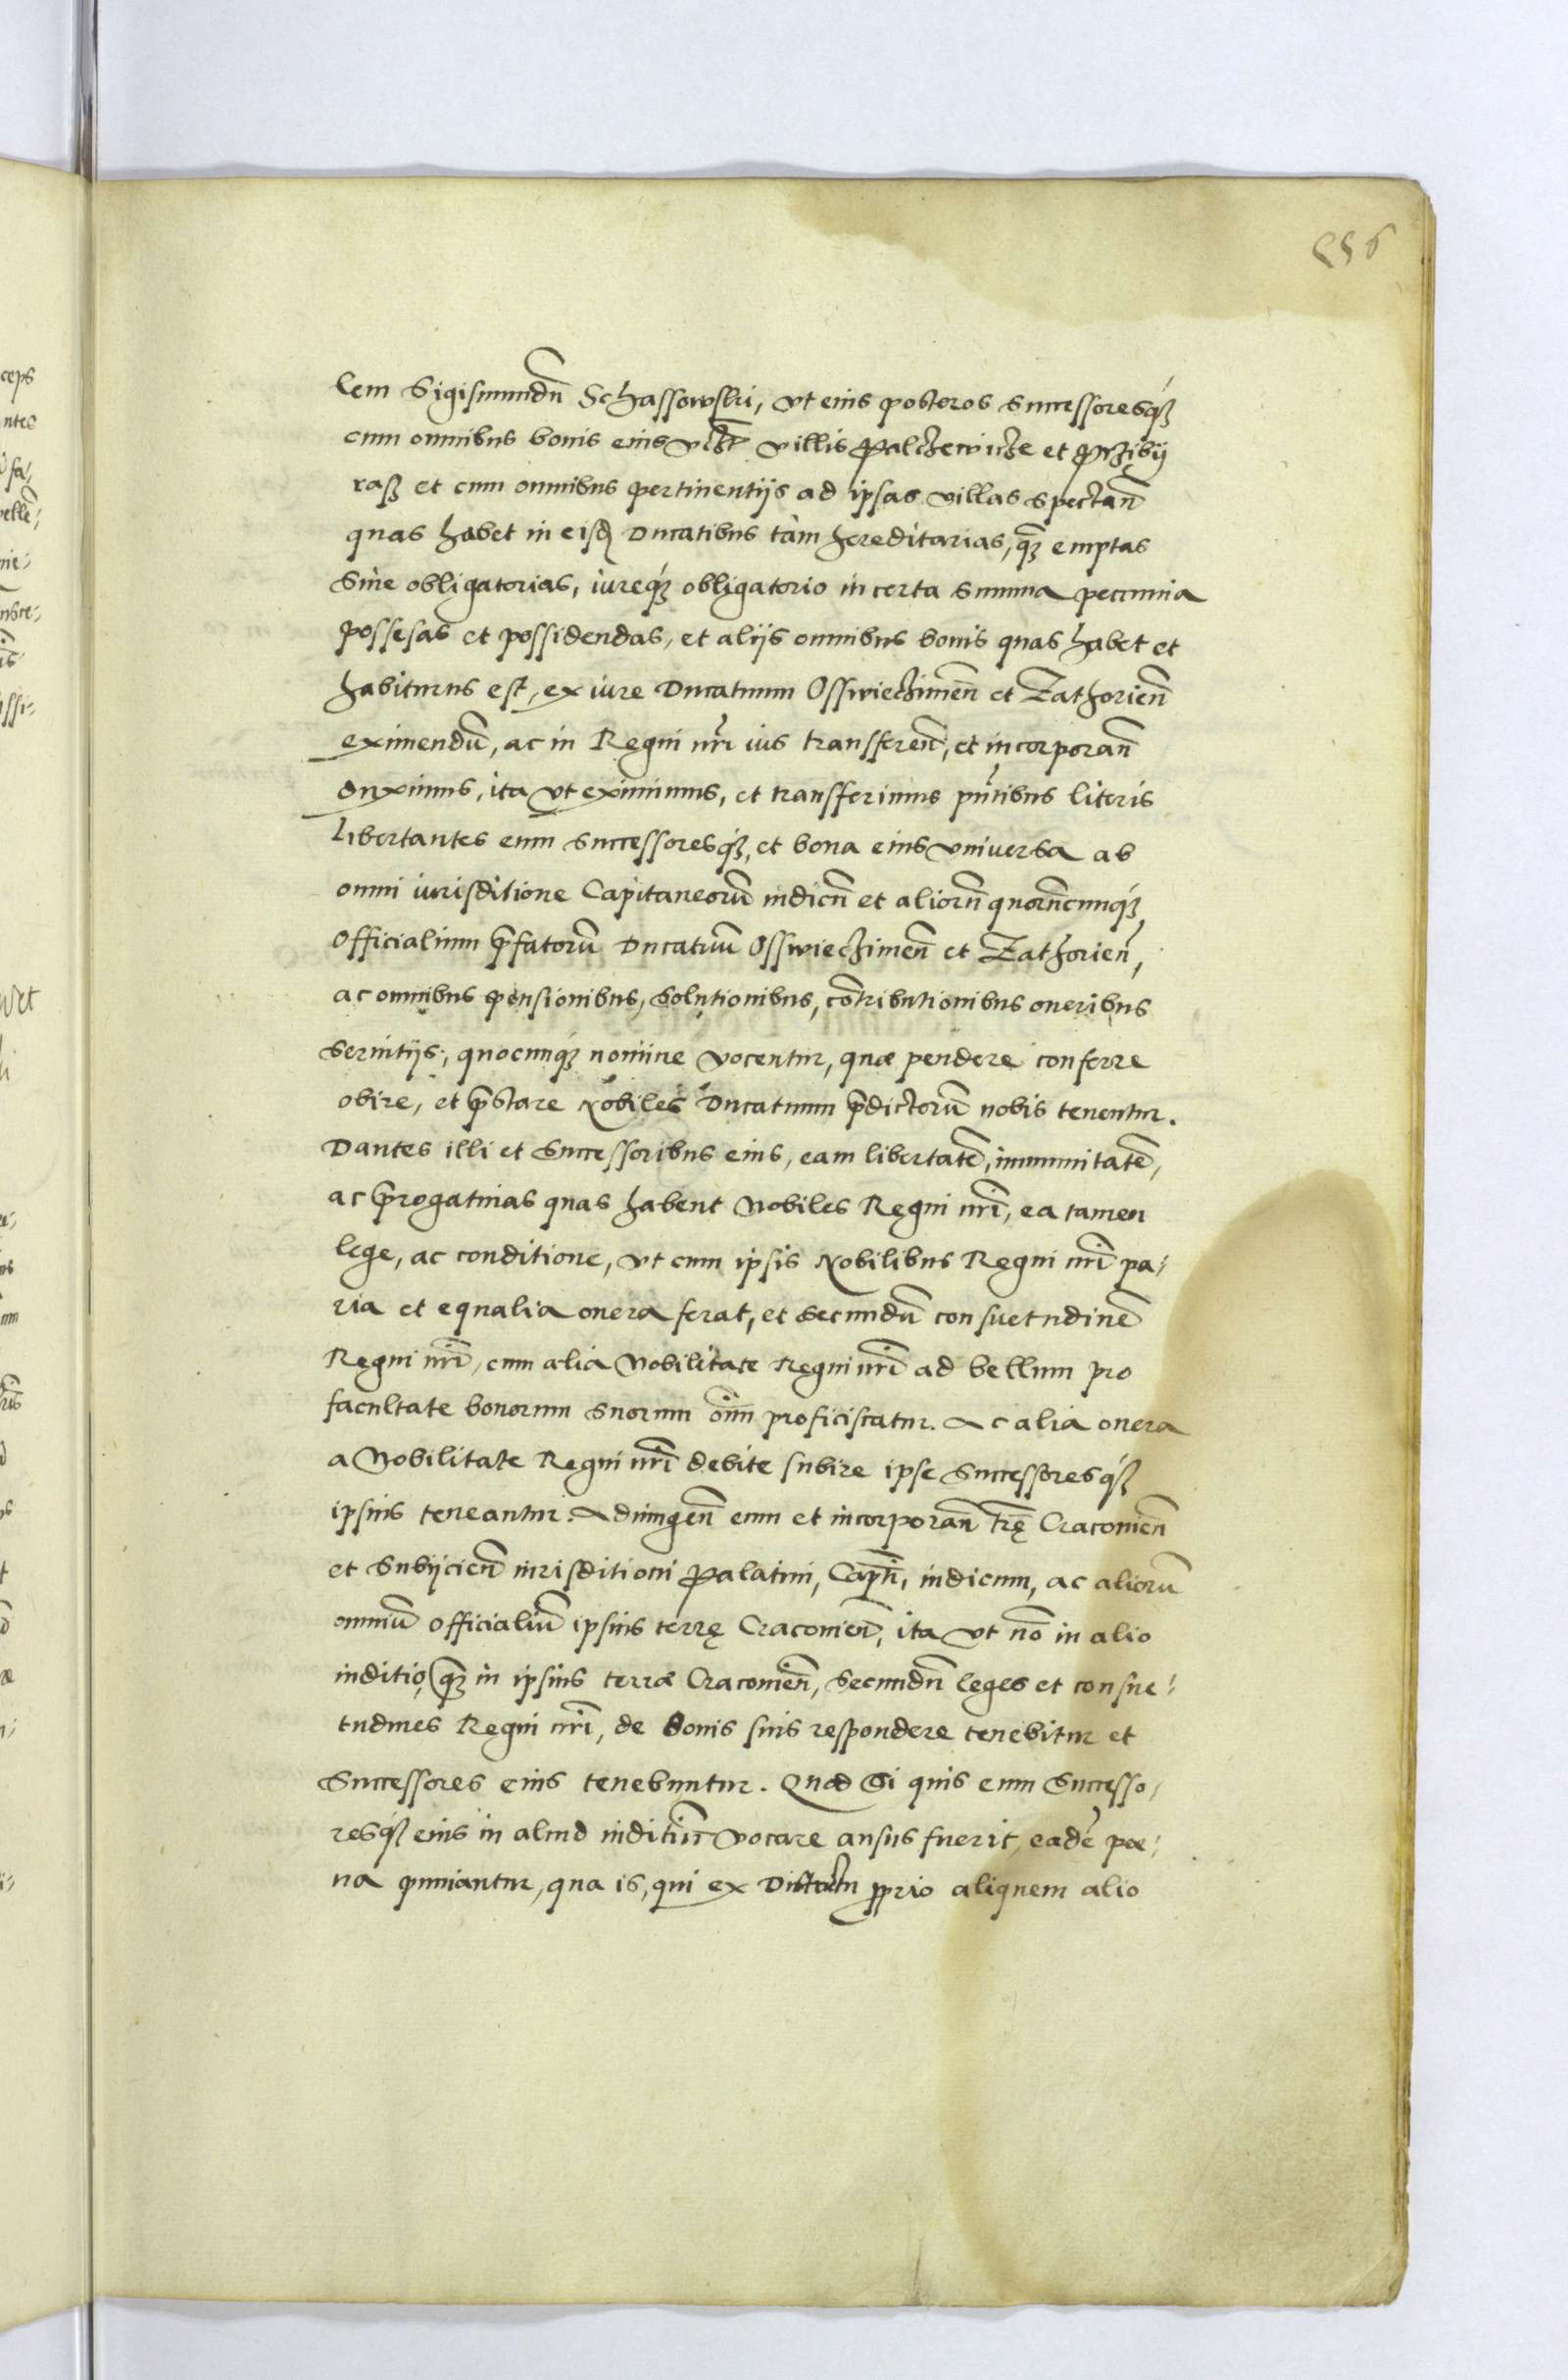 556
lem Sigismundū Schassowski, vt eius posteros successoresq́ꝫ
cum omnibus bonis eius vtꝫ villis Palczewicze et Prziby
raß et cum omnibus pertinentijs ad ipsas villas spectan̄
quas habet in eisd̄ Ducatibus tàm hereditarias, q̄ꝫ emptas
Siue obligatorias, iureq́ꝫ obligatorio in certa summa pecunia
possesas et possidendas, et alijs omnibus bonis quas habet et
habiturus est, ex iure Ducatuum Osswieczimen̄ et Zathorien̄
eximendū, ac in Regni nr̄i ius transferen̄, et incorporan̄
duximus, ita vt eximimus, et transferimus pn̄tibus literis
Libertantes eum successoresq́ꝫ, et bona eius vniuersa ab
omni iurisditione Capitaneorū iudicū et aliorū quorūcunq́ꝫ
Officialium p̄fatorū Ducatuū Osswieczimen̄ et Zathorien̄,
ac omnibus pensionibus, solutionibus, cōtributionibus oneribus
seruitijs, quocunq́ꝫ nomine vocentur, quæ pendere conferre
obire, et p̄stare Nobiles Ducatuum p̄dictorū nobis tenentur.
Dantes illi et Successoribus eius, eam libertatē, immunitatē,
ac p̄rogatiuas quas habent Nobiles Regni nr̄i, ea tamen
lege, ac conditione, vt cum ipsis Nobilibus Regni nr̄i pa-
ria et equalia onera ferat, et secundū consuetudinē
Regni nr̄i, cum alia Nobilitate Regni nr̄i ad bellum pro
facultate bonorum suorum oīm proficiscatur. Ac alia onera
a Nobilitate Regni nr̄i debite subire ipse Successoresq́ꝫ
ipsius teneantur. Adiungen̄ eum et incorporan̄ tr̄ę Cracouien̄
et subijcien̄ iurisditioni Palatini, Cap̄ti, iudicum, ac aliorū
omniū Officialiū ipsius terrę Cracouien̄, ita vt nō in alio
iuditio, q̄ꝫ in ipsius terræ Cracouien̄, secundū leges et consue-
tudines Regni nr̄i, de bonis suis respondere tenebitur et
Successores eius tenebuntur. Quod Si quis eum Successo-
resq́ꝫ eius in aliud iuditiū vocare ausus fuerit, eadē pœ-
na puniantur, qua is, qui ex Districtu p̄prio aliquem alio